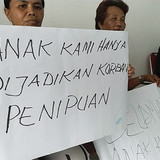 ANAK KAMI HANYA
DIJADIKAN KORBAN
PENIPUAN